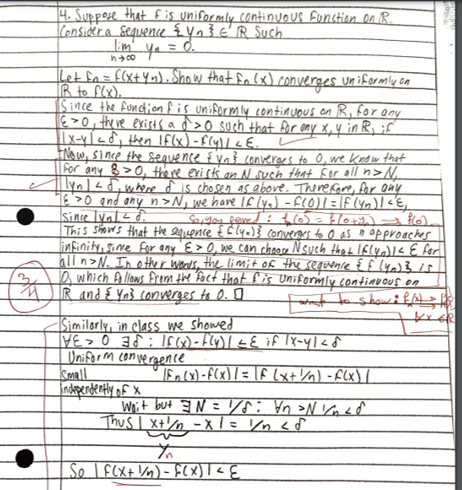 4. Suppose that f is uniformly continuous function on R.
Consider a sequence {yn} ∈ R such
lim yn = 0.
n→∞
Let fn = f(x+yn). Show that fn(x) converges uniformly on
R to f(x).
Since the function f is uniformly continuous on R, for any
ε>0, there exists a δ>0 such that for any x, y in R, if
|x-y|<δ, then |f(x)-f(y)|<ε.
Now, since the sequence {yn} converges to 0, we know that
for any δ>0, there exists an N such that for all n>N,
|yn|<δ, where δ is chosen as above. Therefore, for any
ε>0 and any n>N, we have |f(yn) - f(0)| = |f(yn)|<ε,
since |yn|<δ. So, you proved: fn(0) = f(0+yn) → f(0)
This shows that the sequence {f(yn)} converges to 0 as n approaches
infinity, since for any ε>0, we can choose N such that |f(yn)|<ε for
all n>N. In other words, the limit of the sequence {f(yn)} is
0, which follows from the fact that f is uniformly continuous on
R and {yn} converges to 0. □
3/4
want to show: fn(x) →
∀x∈R
Similarly, in class we showed
∀ε>0 ∃δ: |f(x)-f(y)|≤ε if |x-y|<δ
Uniform convergence
Small |fn(x)-f(x)| = |f(x+1/n)-f(x)|
independently of x
Wait but ∃N = 1/δ: ∀n>N 1/n<δ
Thus |x+1/n - x| = 1/n<δ
yn
So |f(x+1/n)-f(x)|<ε